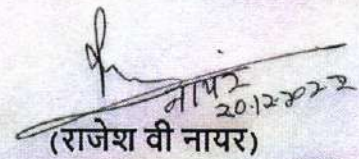 नायर
20.12.2022
(राजेश वी नायर)